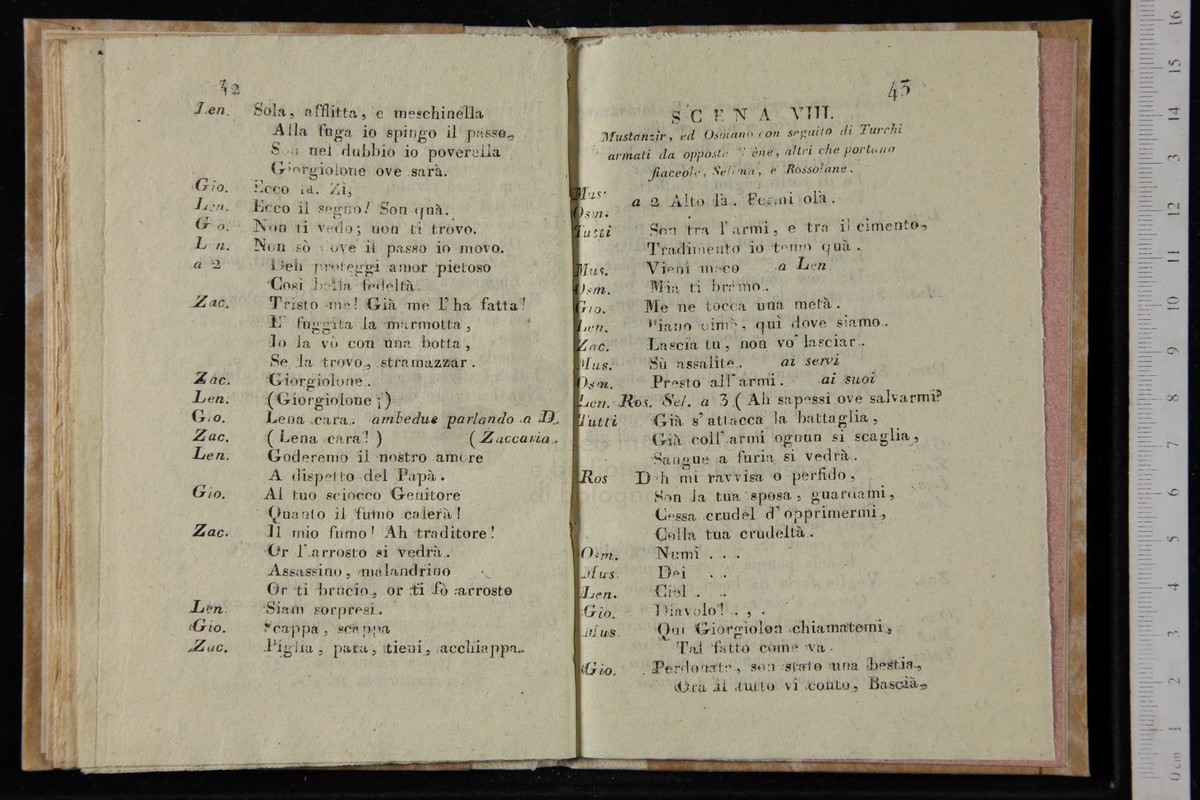 42
Len. Sola, afflitta, e meschinella
Alla fuga io spingo il passo,
Son nel dubbio io poverella
Giorgiolone ove sarà.
Gio. Ecco là. Zi,
Len. Ecco il segno! Son quà.
Gio. Non ti vedo; non ti trovo.
Len. Non sò dove il passo io movo.
a 2 Deh proteggi amor pietoso
Così bella fedeltà.
Zac. Tristo me! Già me l'ha fatta!
E' fuggita la marmotta,
Io la vò con una botta,
Se la trovo, stramazzar.
Zac. Giorgiolone.
Len. (Giorgiolone;)
Gio. Lena cara. ambedue parlando a D.
Zac. (Lena cara!) (Zaccaria.
Len. Goderemo il nostro amore
A dispetto del Papà.
Gio. Al tuo sciocco Genitore
Quanto il fumo calerà!
Zac. Il mio fumo! Ah traditore!
Or l'arrosto si vedrà.
Assassino, malandrino
Or ti brucio, or ti fò arrosto
Len. Siam sorpresi.
Gio. Scappa, scappa
Zac. Piglia, para, tieni, acchiappa.
43
SCENA VIII.
Mustanzir, ed Osmano con seguito di Turchi
armati da opposte Scène, altri che portano
fiaccole, Selima, e Rossolane.
Mus.
Osm. a 2 Alto là. Fermi olà.
Tutti Son tra l'armi, e tra il cimento,
Tradimento io temo quà.
Mus. Vieni meco a Len.
Osm. Mia ti bramo.
Gio. Me ne tocca una metà.
Len. Piano oimè, quì dove siamo.
Zac. Lascia tu, non vo' lasciar.
Mus. Sù assalite. ai servi
Osm. Presto all'armi. ai suoi
Len. Ros. Sel. a 3 (Ah sapessi ove salvarmi?
Tutti Già s'attacca la battaglia,
Già coll'armi ognun si scaglia,
Sangue a furia si vedrà.
Ros Deh mi ravvisa o perfido,
Son la tua sposa, guardami,
Cessa crudel d'opprimermi,
Colla tua crudeltà.
Osm. Numi . . .
Mus. Dei . .
Len. Ciel . .
Gio. Diavolo! . , .
Mus. Qui Giorgiolon chiamatemi,
Tal fatto come va.
Gio. Perdonate, son stato una bestia,
Ora il tutto vi conto, Bascià,